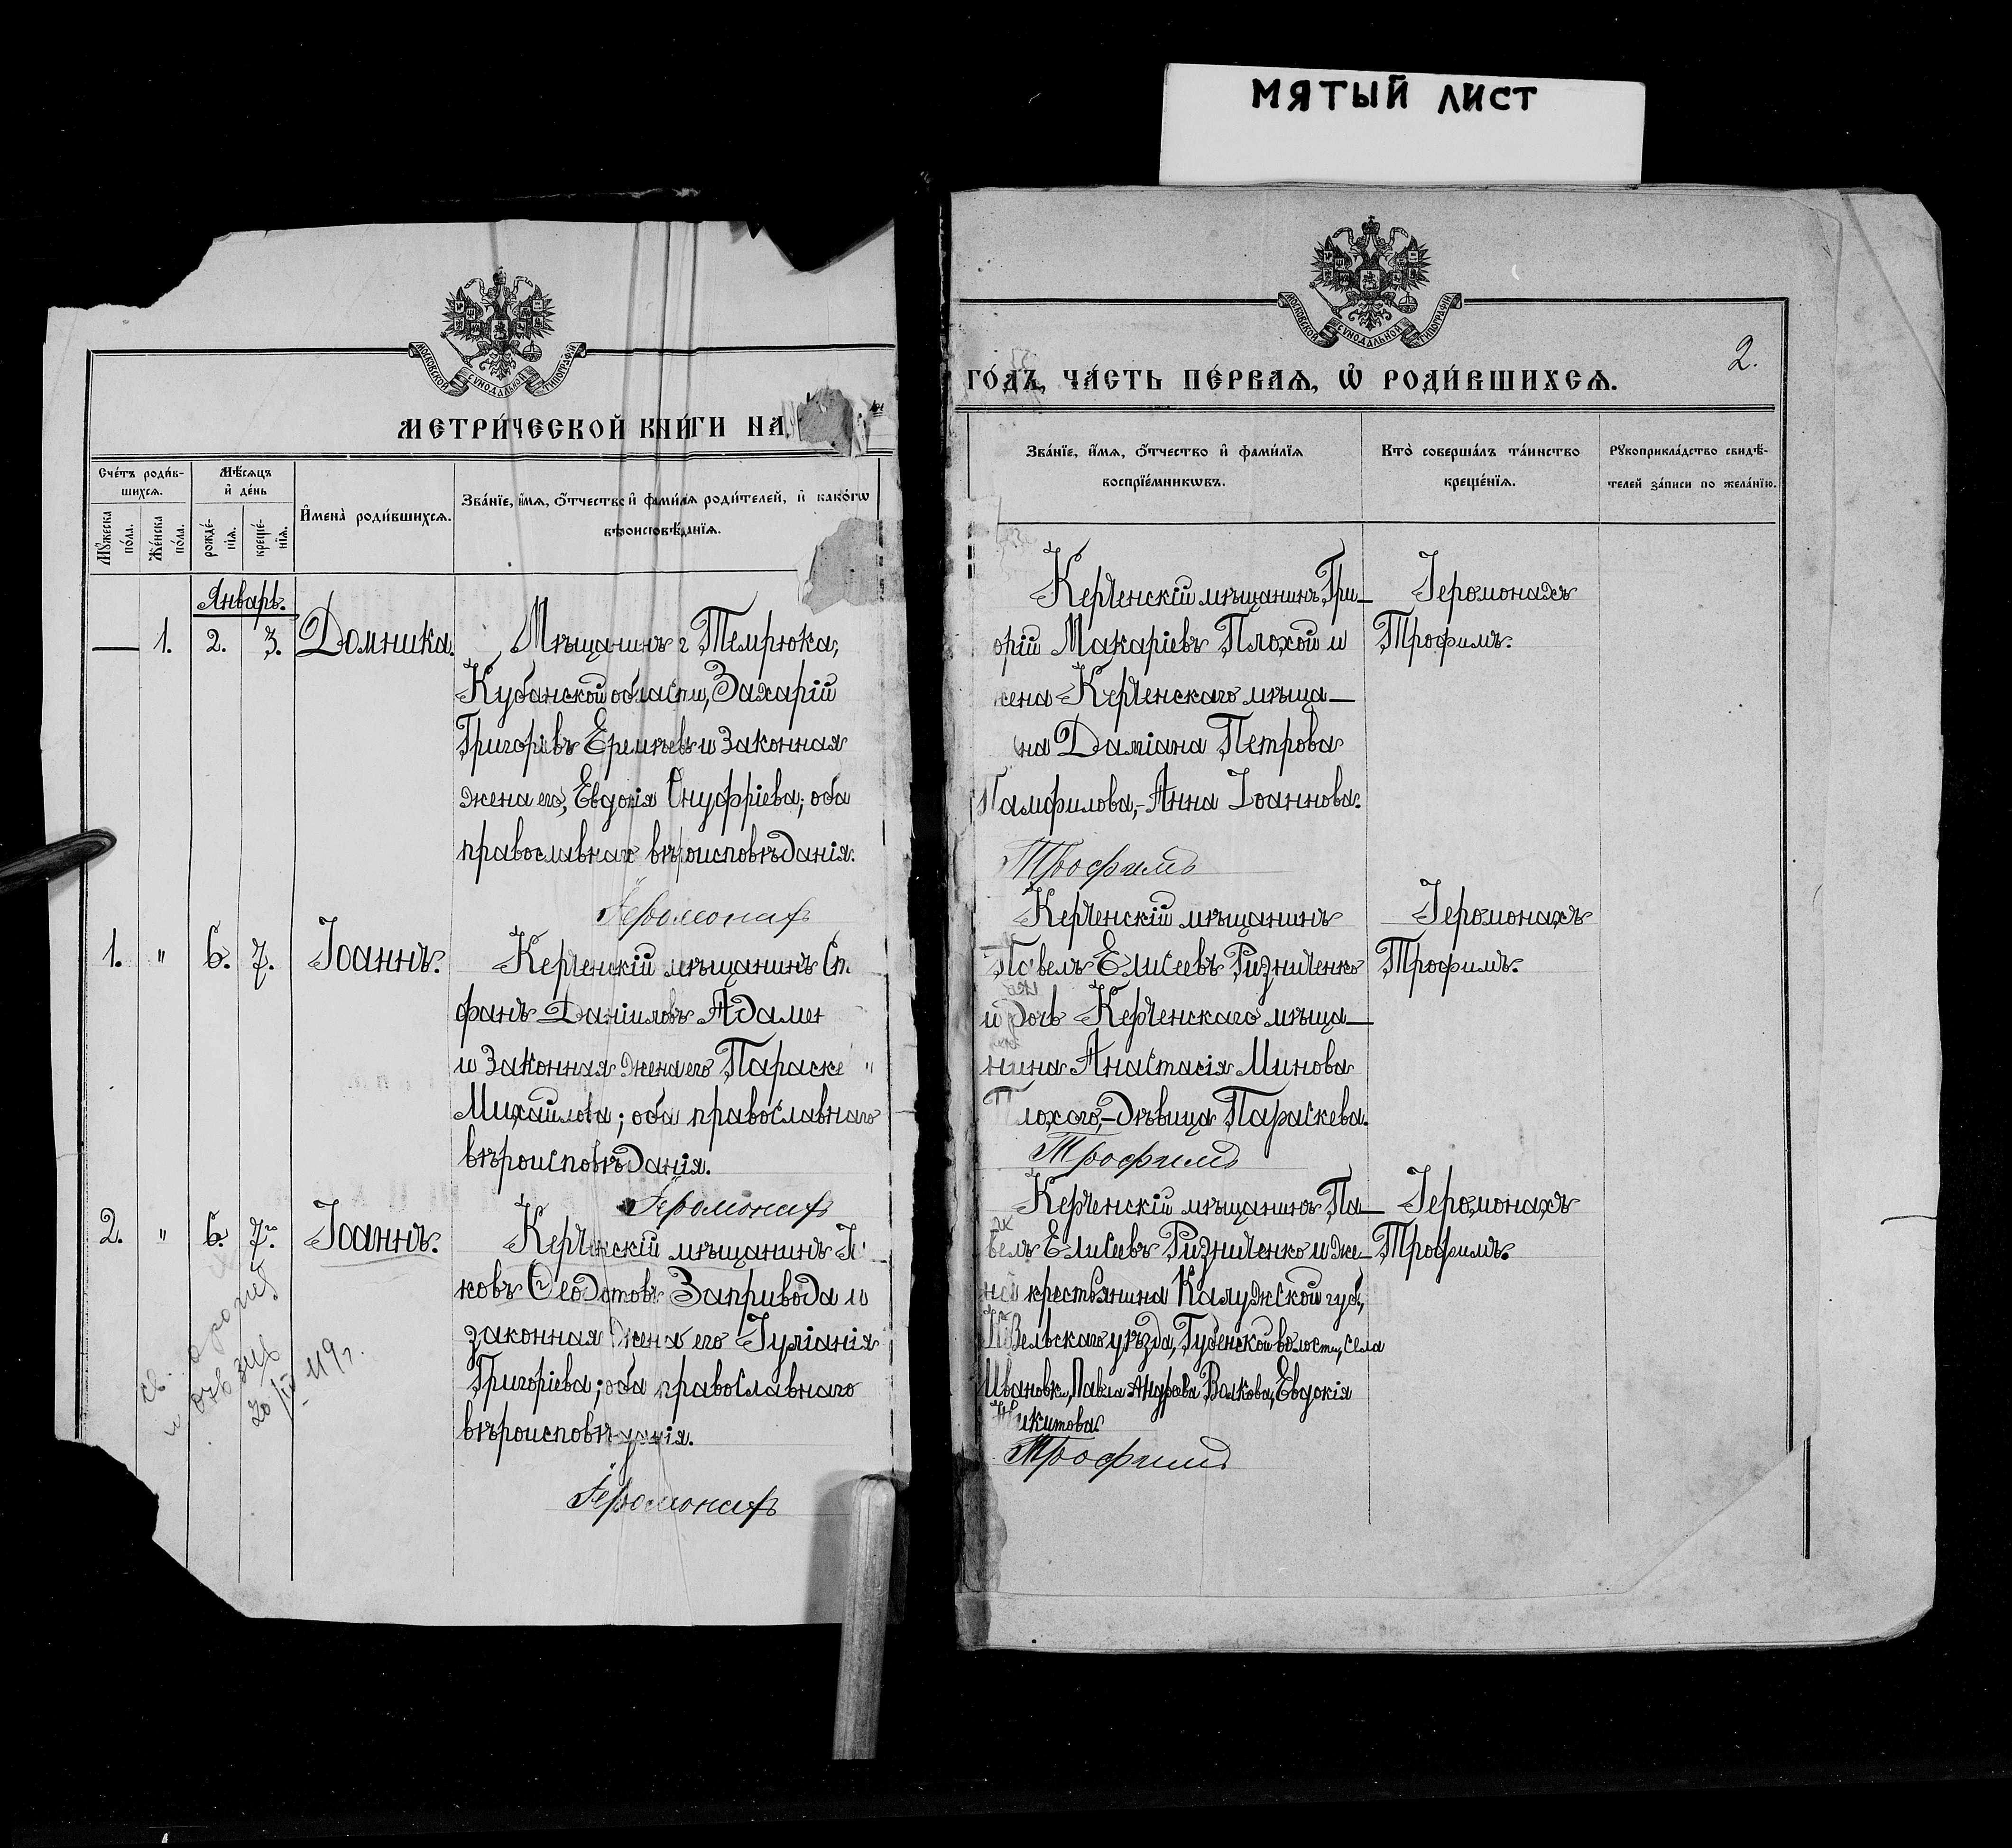 МЯТЫЙ ЛИСТ
МОСКОВСКОЙ СѴНОДАЛЬНОЙ ТИПОГРАФІИ
МЕТРИ́ЧЕСКОЙ КНИ́ГИ НА
Сче́тъ роди́в-
шихся.
Мѣ́сяцъ
и҆ де́нь
Мꙋ́жеска
по́ла.
Же́нска
по́ла.
рожде́-
нїѧ.
креще́-
нїѧ.
И҆мена̀ роди́вшихсѧ.
Зва́нїе, и҆́мѧ, ѻ҆́тчество и҆ фами́лїѧ роди́телей, и҆ како́гѡ
вѣроисповѣ́данїѧ.
Январь.
— 1. 2. 3. Домника.
Мѣщанинъ г Темрюка,
Кубанской области, Захарій
Григорьевъ Еремѣевъ и законная
жена его, Евдокія Онуфріева; оба
православнаго вѣроисповѣданія.
Іеромонахъ
1. " 6. 7. Іоаннъ.
Керченскій мѣщанинъ Ст
фанъ Даніиловъ Адамен
и законная жена его Параске
Михайлова; оба православнаго
вѣроисповѣданія.
Іеромонахъ
2. " 6. 7. Іоаннъ.
Керченскій мѣщанинъ
ковъ Ѳеодотовъ Запривода и
законная жена его Іуліанія
Григоріева; оба православнаго
вѣроисповѣданія.
Іеромонахъ
МОСКОВСКОЙ СѴНОДАЛЬНОЙ ТИПОГРАФІИ
2.
ГО́ДЪ, ЧА́СТЬ ПЕ́РВАѦ, Ѽ РОДИ́ВШИХСѦ.
Зва́нїе, и҆́мѧ, ѻ҆́тчество и҆ фами́лїѧ
воспрїе́мникѡвъ.
Кто̀ соверша́лъ та́инство
креще́нїѧ.
Рꙋкоприкла́дство свидѣ́-
телей за́писи по жела́нїю.
Керченскій мѣщанинъ Гри—
орій Макаріевъ Плохой и
жена Керченскаго мѣща—
на Даміана Петрова
Памфилова,- Анна Іоаннова.
Іеромонахъ
Трофимъ.
Трофимъ
Керченскій мѣщанинъ
Павелъ Елисеевъ Ризниченко
и дочь Керченскаго мѣща—
нина Анастасія Минова
Плохого,- дѣвица Параскева.
Іеромонахъ
Трофимъ.
Трофимъ
Керченскій мѣщанинъ Па—
велъ Елисеевъ Ризниченко и же—
на крестьянина Калужской губ.,
уѣзда, Губенской волости, села
Ивановки, Павла Андреева Волкова, Евдокія
Никитова
Іеромонахъ
Трофимъ.
Трофимъ